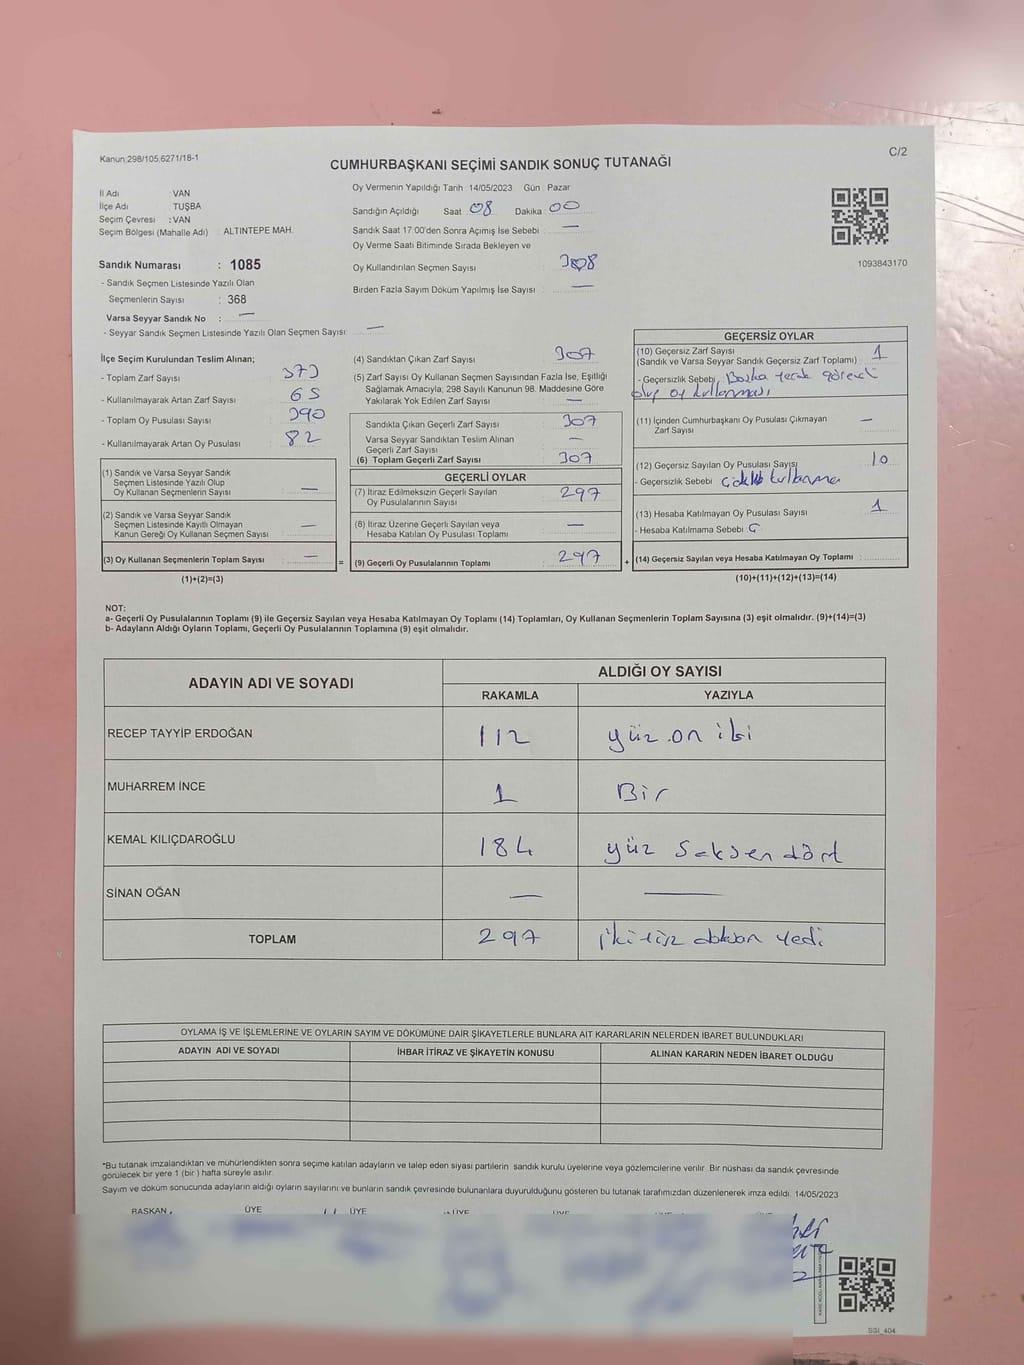 Kanun:298/105,6271/18-1
C/2
CUMHURBAŞKANI SEÇİMİ SANDIK SONUÇ TUTANAĞI
İl Adı : VAN
İlçe Adı : TUŞBA
Seçim Çevresi : VAN
Seçim Bölgesi (Mahalle Adı) : ALTINTEPE MAH.
Sandık Numarası : 1085
- Sandık Seçmen Listesinde Yazılı Olan
Seçmenlerin Sayısı : 368
Varsa Seyyar Sandık No : —
- Seyyar Sandık Seçmen Listesinde Yazılı Olan Seçmen Sayısı: —
Oy Vermenin Yapıldığı Tarih : 14/05/2023 Gün : Pazar
Sandığın Açıldığı Saat : 08 Dakika : 00
Sandık Saat 17:00'den Sonra Açımış İse Sebebi : —
Oy Verme Saati Bitiminde Sırada Bekleyen ve
Oy Kullandırılan Seçmen Sayısı : 308
Birden Fazla Sayım Döküm Yapılmış İse Sayısı : —
1093843170
İlçe Seçim Kurulundan Teslim Alınan;
- Toplam Zarf Sayısı : 373
- Kullanılmayarak Artan Zarf Sayısı : 65
- Toplam Oy Pusulası Sayısı : 390
- Kullanılmayarak Artan Oy Pusulası : 82
(1) Sandık ve Varsa Seyyar Sandık
Seçmen Listesinde Yazılı Olup
Oy Kullanan Seçmenlerin Sayısı : —
(2) Sandık ve Varsa Seyyar Sandık
Seçmen Listesinde Kayıtlı Olmayan
Kanun Gereği Oy Kullanan Seçmen Sayısı : —
(3) Oy Kullanan Seçmenlerin Toplam Sayısı : —
(1)+(2)=(3)
=
(4) Sandıktan Çıkan Zarf Sayısı : 307
(5) Zarf Sayısı Oy Kullanan Seçmen Sayısından Fazla İse, Eşitliği
Sağlamak Amacıyla; 298 Sayılı Kanunun 98. Maddesine Göre
Yakılarak Yok Edilen Zarf Sayısı : —
Sandıkta Çıkan Geçerli Zarf Sayısı : 307
Varsa Seyyar Sandıktan Teslim Alınan
Geçerli Zarf Sayısı : —
(6) Toplam Geçerli Zarf Sayısı : 307
GEÇERLİ OYLAR
(7) İtiraz Edilmeksizin Geçerli Sayılan
Oy Pusulalarının Sayısı : 297
(8) İtiraz Üzerine Geçerli Sayılan veya
Hesaba Katılan Oy Pusulası Toplamı : —
(9) Geçerli Oy Pusulalarının Toplamı : 297
+
GEÇERSİZ OYLAR
(10) Geçersiz Zarf Sayısı
(Sandık ve Varsa Seyyar Sandık Geçersiz Zarf Toplamı) : 1
- Geçersizlik Sebebi: Başka yerde görevli
olup oy kullanması
(11) İçinden Cumhurbaşkanı Oy Pusulası Çıkmayan
Zarf Sayısı : —
(12) Geçersiz Sayılan Oy Pusulası Sayısı : 10
- Geçersizlik Sebebi: kullanma
(13) Hesaba Katılmayan Oy Pusulası Sayısı : 1
- Hesaba Katılmama Sebebi:
(14) Geçersiz Sayılan veya Hesaba Katılmayan Oy Toplamı :
(10)+(11)+(12)+(13)=(14)
NOT:
a- Geçerli Oy Pusulalarının Toplamı (9) ile Geçersiz Sayılan veya Hesaba Katılmayan Oy Toplamı (14) Toplamları, Oy Kullanan Seçmenlerin Toplam Sayısına (3) eşit olmalıdır. (9)+(14)=(3)
b- Adayların Aldığı Oyların Toplamı, Geçerli Oy Pusulalarının Toplamına (9) eşit olmalıdır.
ADAYIN ADI VE SOYADI ALDIĞI OY SAYISI
RAKAMLA YAZIYLA
RECEP TAYYİP ERDOĞAN 112 yüz on iki
MUHARREM İNCE 1 Bir
KEMAL KILIÇDAROĞLU 184 yüz seksen dört
SİNAN OĞAN — —
TOPLAM 297 ikiyüz doksan yedi
OYLAMA İŞ VE İŞLEMLERİNE VE OYLARIN SAYIM VE DÖKÜMÜNE DAİR ŞİKAYETLERLE BUNLARA AİT KARARLARIN NELERDEN İBARET BULUNDUKLARI
ADAYIN ADI VE SOYADI İHBAR İTİRAZ VE ŞİKAYETİN KONUSU ALINAN KARARIN NEDEN İBARET OLDUĞU
*Bu tutanak imzalandıktan ve mühürlendikten sonra seçime katılan adayların ve talep eden siyasi partilerin sandık kurulu üyelerine veya gözlemcilerine verilir. Bir nüshası da sandık çevresinde
görülecek bir yere 1 (bir) hafta süreyle asılır.
Sayım ve döküm sonucunda adayların aldığı oyların sayılarını ve bunların sandık çevresinde bulunanlara duyurulduğunu gösteren bu tutanak tarafımızdan düzenlenerek imza edildi. 14/05/2023
BAŞKAN ÜYE ÜYE ÜYE ÜYE
SSI_404